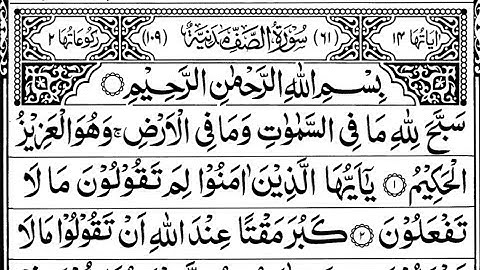 اٰیَاتُهَا ۱۴ (۶۱) سُوْرَةُ الصَّفِّ مَدَنِیَّةٌ (۱۰۹) رُكُوْعَاتُهَا ۲
بِسْمِ اللّٰهِ الرَّحْمٰنِ الرَّحِیْمِ
سَبَّحَ لِلّٰهِ مَا فِی السَّمٰوٰتِ وَمَا فِی الْاَرْضِ ۚ وَهُوَ الْعَزِیْزُ
الْحَكِیْمُ ۱ یٰۤاَیُّهَا الَّذِیْنَ اٰمَنُوْا لِمَ تَقُوْلُوْنَ مَا لَا
تَفْعَلُوْنَ ۲ كَبُرَ مَقْتًا عِنْدَ اللّٰهِ اَنْ تَقُوْلُوْا مَا لَا